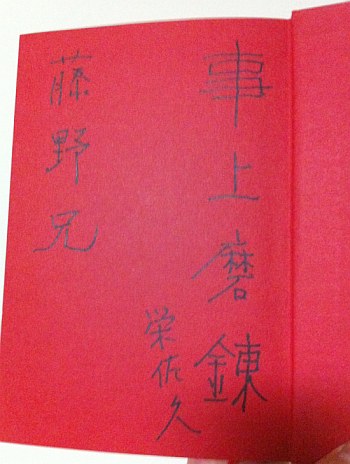 事上磨錬
栄佐久
藤野兄